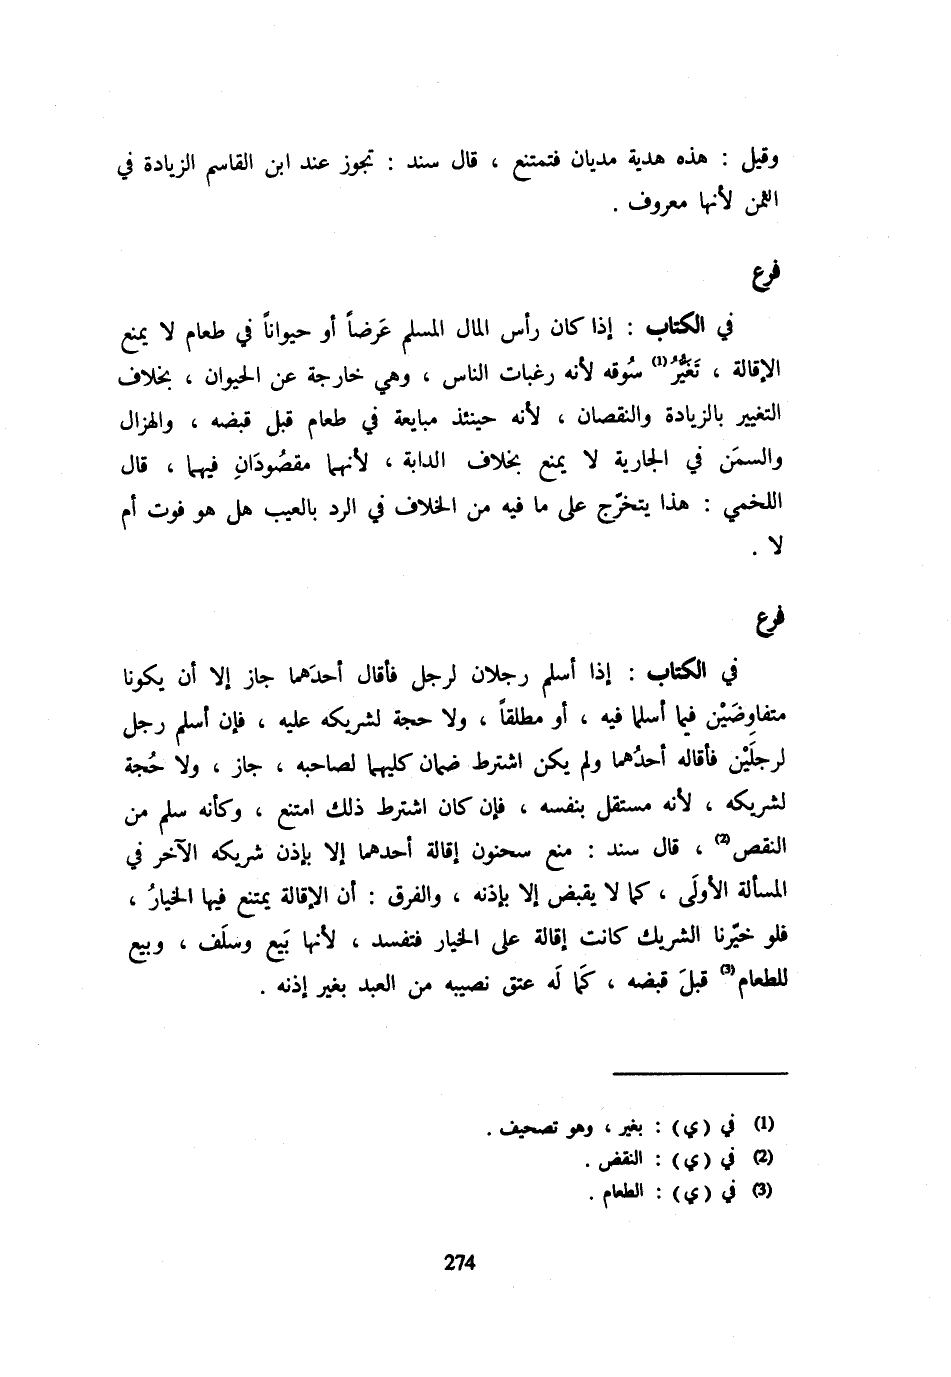 وقيل : هذه هدية مديان فتمتنع ، قال سند : تجوز عند ابن القاسم الزيادة في
الثمن لأنها معروف .
فرع
في الكتاب : إذا كان رأس المال المسلم عَرضاً أو حيواناً في طعام لا يمنع
الإقالة ، تَغَيُّرُ(1) سُوقه لأنه رغبات الناس ، وهي خارجة عن الحيوان ، بخلاف
التغيير بالزيادة والنقصان ، لأنه حينئذ مبايعة في طعام قبل قبضه ، والهزال
والسمَن في الجارية لا يمنع بخلاف الدابة ، لأنهما مقصُودَانِ فيهما ، قال
اللخمي : هذا يتخرّج على ما فيه من الخلاف في الرد بالعيب هل هو فوت أم
لا .
فرع
في الكتاب : إذا أسلم رجلان لرجل فأقال أحدَهما جاز إلا أن يكونا
متفاوِضَيْن فيما أسلما فيه ، أو مطلقاً ، ولا حجة لشريكه عليه ، فإن أسلم رجل
لرجلَيْن فأقاله أحدُهما ولم يكن اشترط ضمان كليهما لصاحبه ، جاز ، ولا حُجة
لشريكه ، لأنه مستقل بنفسه ، فإن كان اشترط ذلك امتنع ، وكأنه سلم من
النقص(2) ، قال سند : منع سحنون إقالة أحدهما إلا بإذن شريكه الآخر في
المسألة الأولَى ، كما لا يقبض إلا بإذنه ، والفرق : أن الإقالة يمتنع فيها الخيارُ ،
فلو خيّرنا الشريك كانت إقالة على الخيار فتفسد ، لأنها بَيع وسلَف ، وبيع
للطعام(3) قبلَ قبضه ، كَما لَه عتق نصيبه من العبد بغير إذنه .
(1) في (ي) : بغير ، وهو تصحيف .
(2) في (ي) : النقض .
(3) في (ي) : الطعام .
274